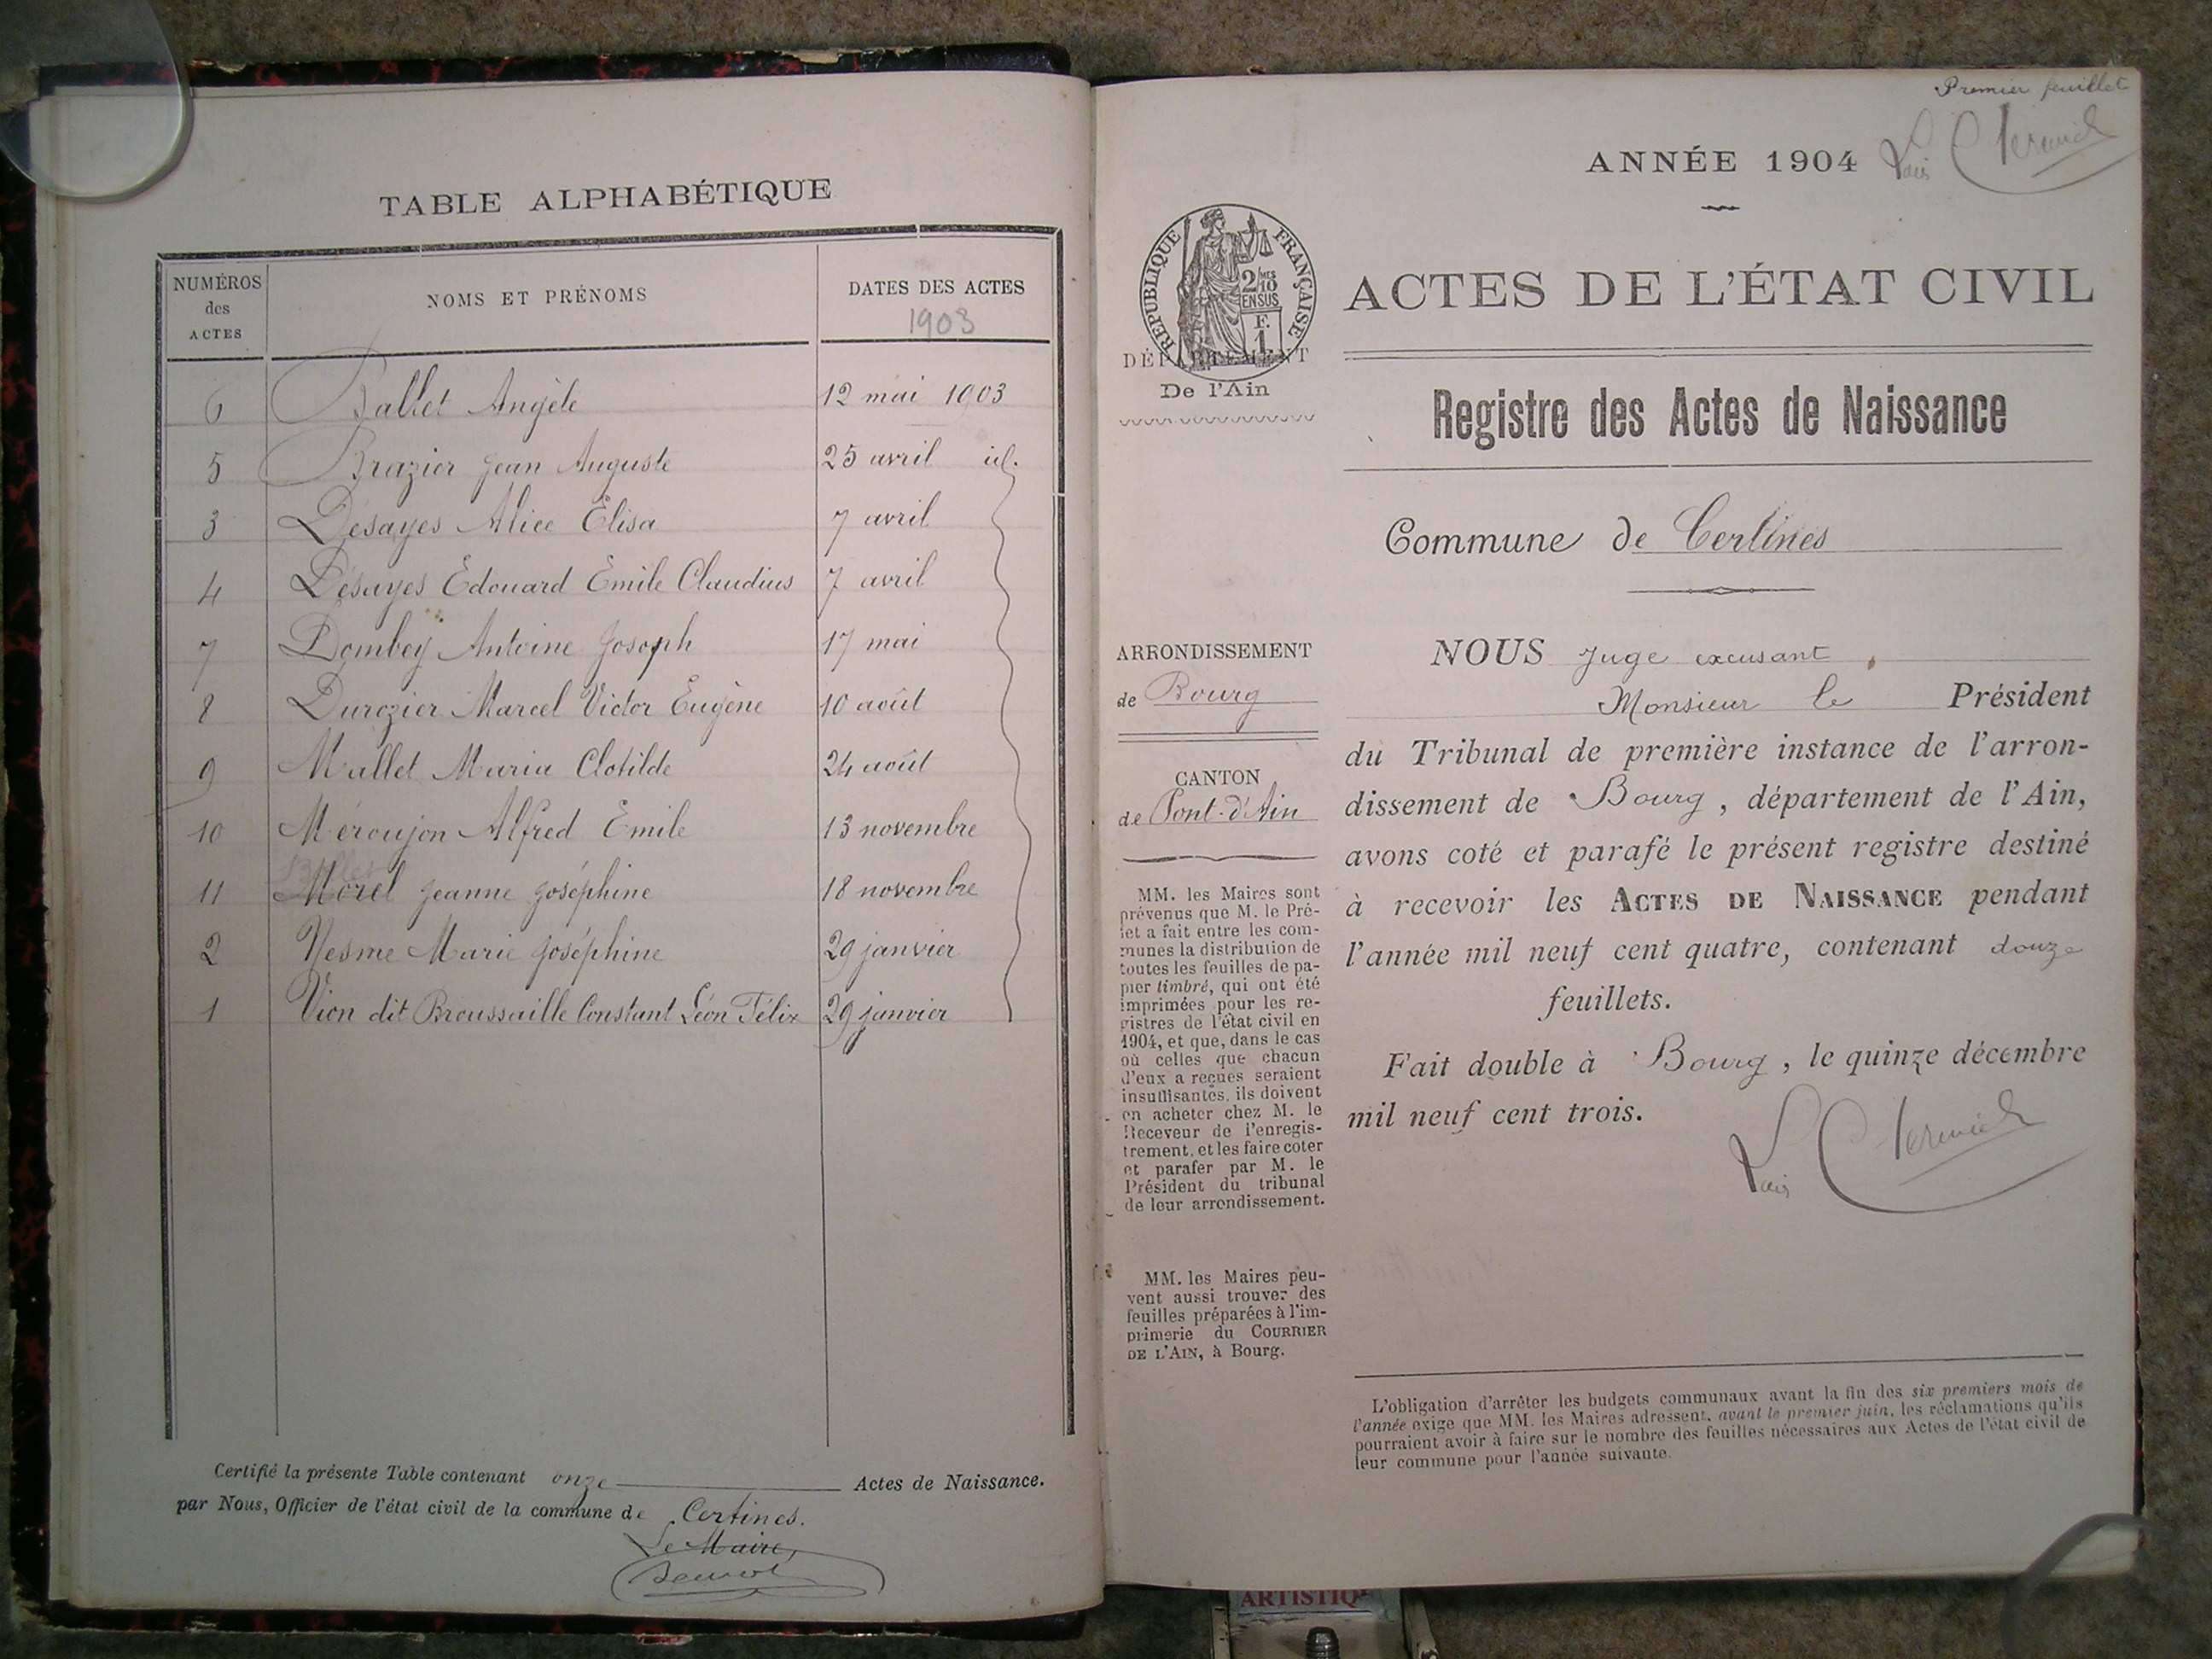 TABLE ALPHABÉTIQUE
NUMÉROS des ACTES
NOMS ET PRÉNOMS
DATES DES ACTES
1903
6 Ballet Angèle 12 mai 1903
5 Brazier Jean Auguste 25 avril id.
3 Désayes Alice Élisa 7 avril
4 Désayes Édouard Émile Claudius 7 avril
7 Dombey Antoine Joseph 17 mai
8 Durozier Marcel Victor Eugène 10 août
9 Mallet Maria Clotilde 24 août
10 Méroujon Alfred Émile 13 novembre
11 Morel Jeanne Joséphine 18 novembre
2 Nesme Marie Joséphine 29 janvier
1 Vion dit Broussaille Constant Léon Félix 29 janvier
Certifié la présente Table contenant onze Actes de Naissance.
par Nous, Officier de l'état civil de la commune de Certines.
Le Maire,
Premier feuillet
ANNÉE 1904
RÉPUBLIQUE FRANÇAISE
2/10 EN SUS
F. 1
DÉPARTEMENT
De l'Ain
ACTES DE L'ÉTAT CIVIL
Registre des Actes de Naissance
Commune de Certines
ARRONDISSEMENT
de Bourg
CANTON
de Pont-d'Ain
MM. les Maires sont
prévenus que M. le Pré-
fet a fait entre les com-
munes la distribution de
toutes les feuilles de pa-
pier timbré, qui ont été
imprimées pour les re-
gistres de l'état civil en
1904, et que, dans le cas
où celles que chacun
d'eux a reçues seraient
insuffisantes, ils doivent
en acheter chez M. le
Receveur de l'enregis-
trement, et les faire coter
et parafer par M. le
Président du tribunal
de leur arrondissement.
MM. les Maires peu-
vent aussi trouver des
feuilles préparées à l'im-
primerie du COURRIER
DE L'AIN, à Bourg.
NOUS Juge excusant
Monsieur le Président
du Tribunal de première instance de l'arron-
dissement de Bourg, département de l'Ain,
avons coté et parafé le présent registre destiné
à recevoir les ACTES DE NAISSANCE pendant
l'année mil neuf cent quatre, contenant douze
feuillets.
Fait double à Bourg, le quinze décembre
mil neuf cent trois.
L'obligation d'arrêter les budgets communaux avant la fin des six premiers mois de
l'année exige que MM. les Maires adressent, avant le premier juin, les réclamations qu'ils
pourraient avoir à faire sur le nombre des feuilles nécessaires aux Actes de l'état civil de
leur commune pour l'année suivante.
ARTISTIQ